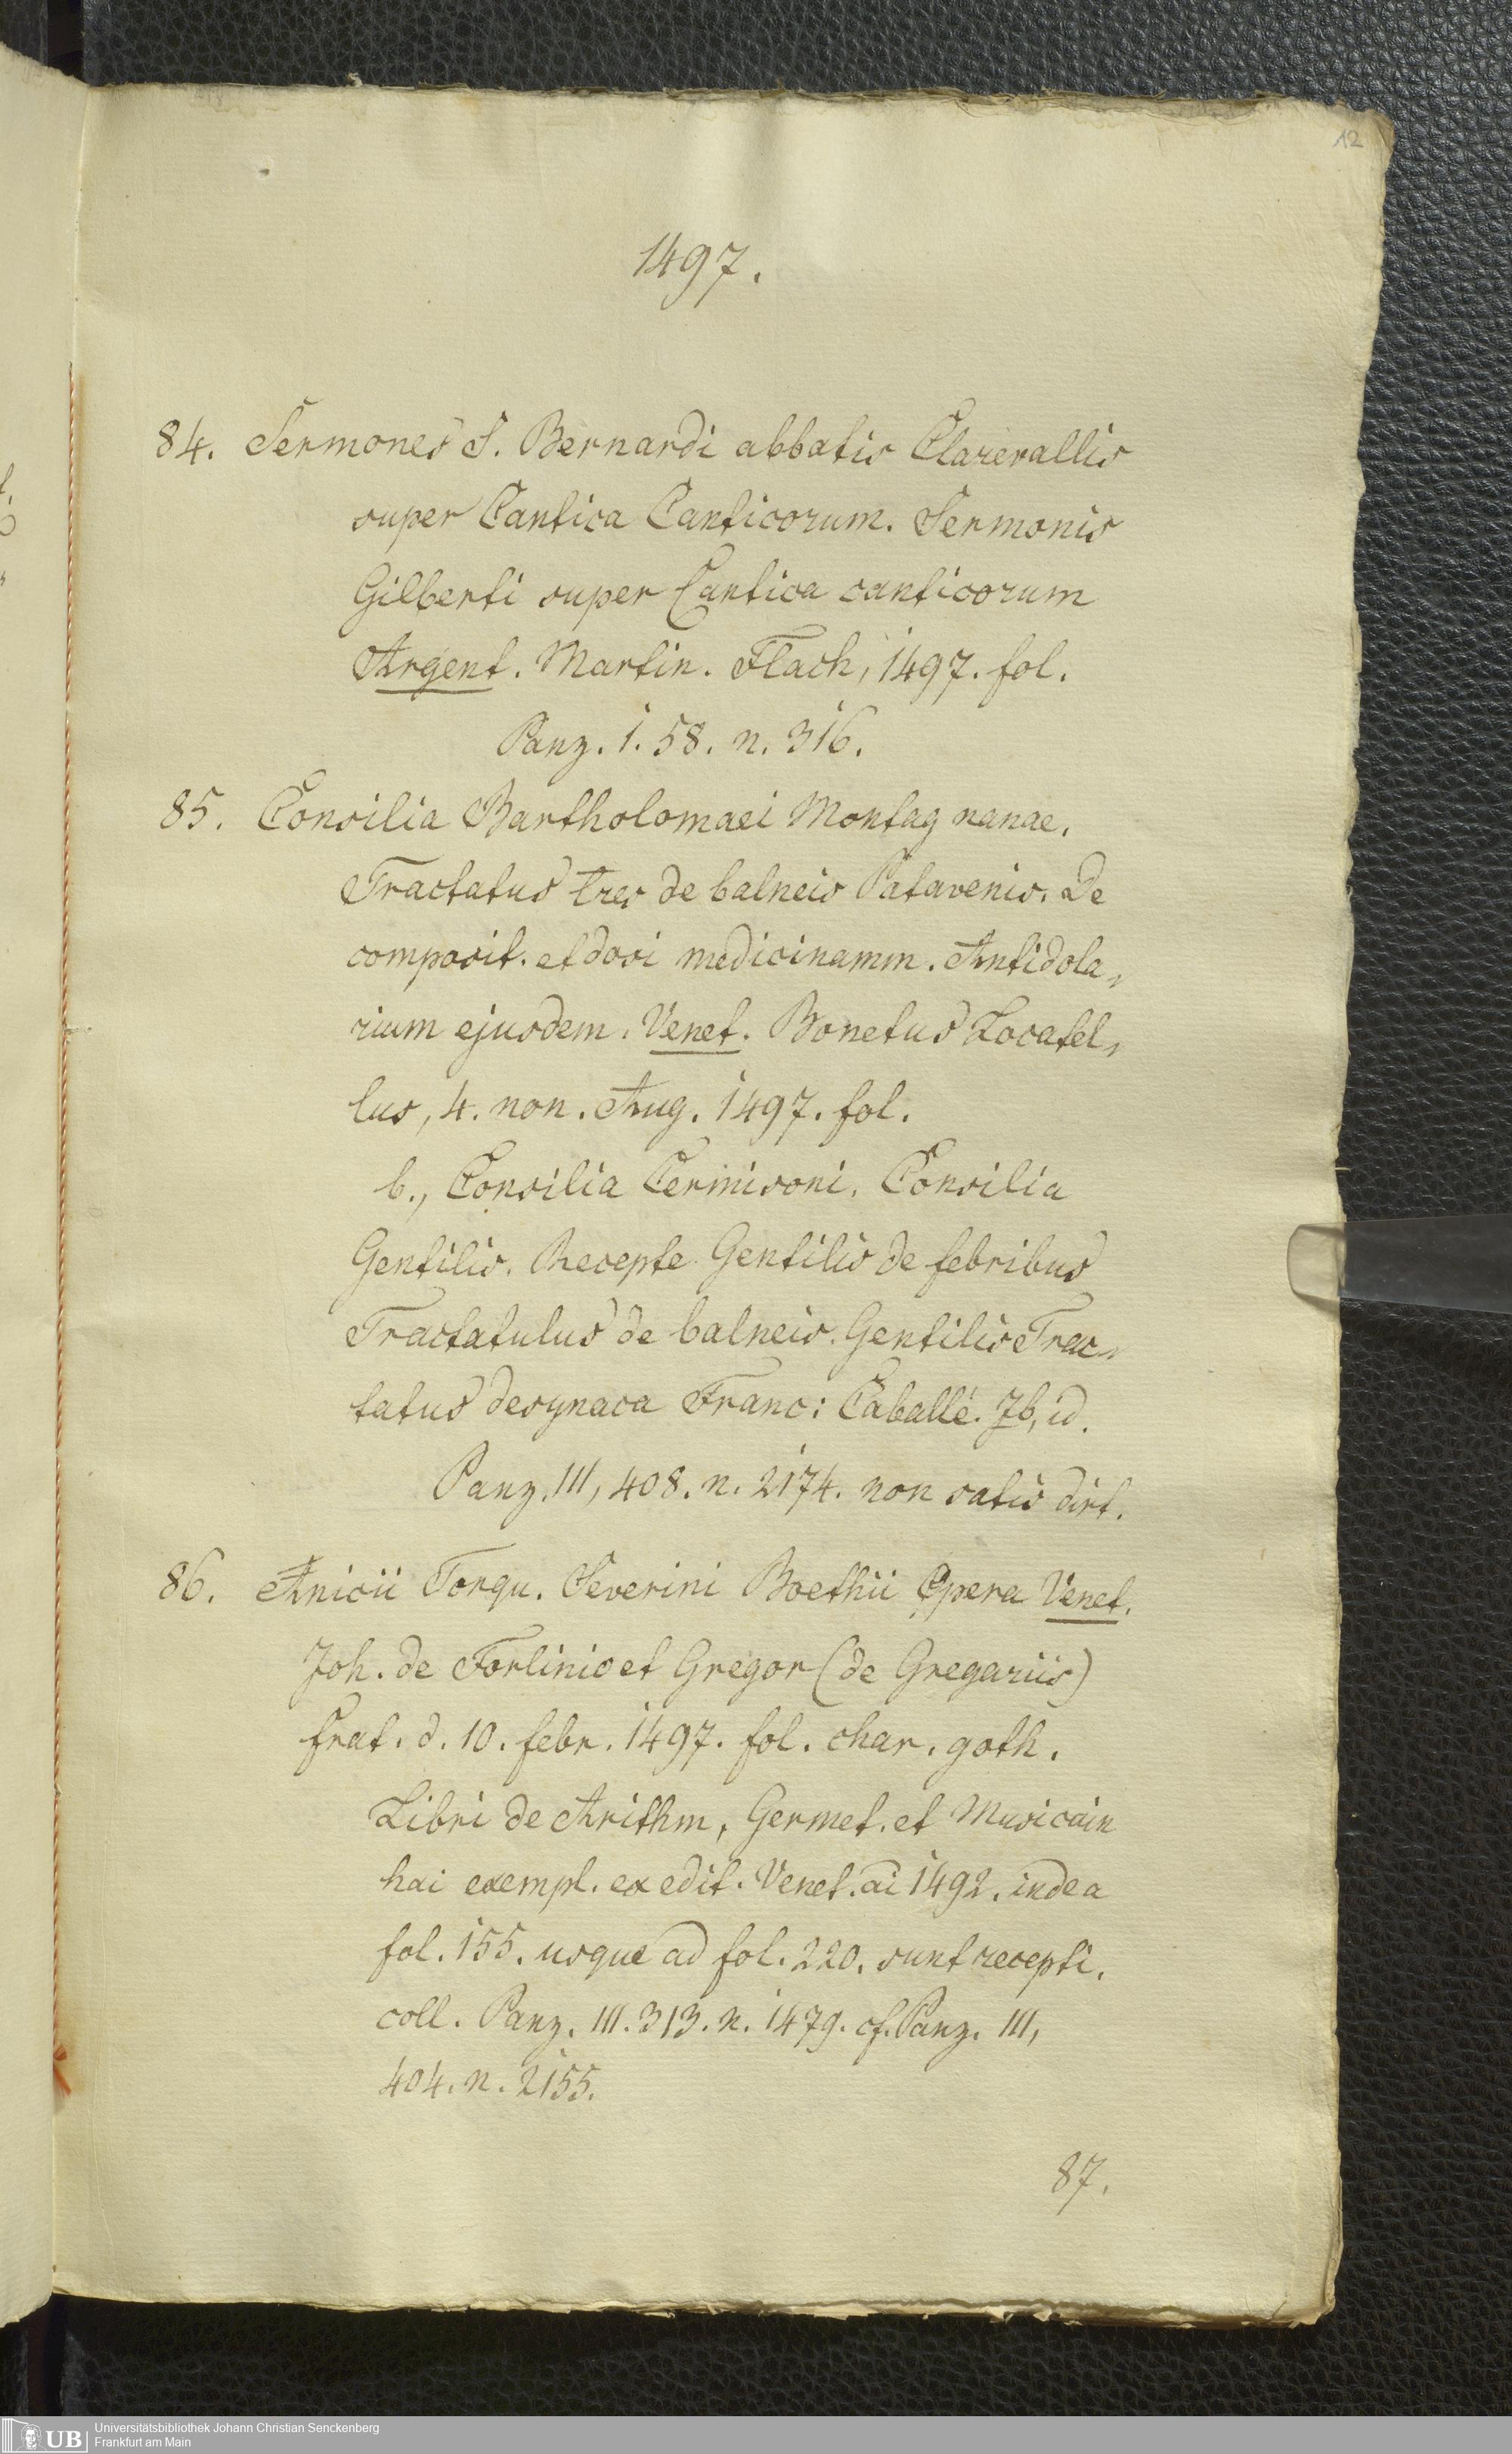 12
1497.
84. Sermones S. Bernardi abbatis Clarevallis
super Cantica Canticorum. Sermonis
Gilberti super Cantica canticorum
Argent. Martin. Flach, 1497. fol.
Panz. 1. 58. n. 316.
85. Consilia Bartholomaei Montag nanae.
Tractatus tres de balneis Patavenis. De
composit. et dosi medicinamm. Antidola-
rium ejusdem. Venet. Bonetus Locatel-
lus, 4. non. Aug. 1497. fol.
b., Consilia Cermisoni. Consilia
Gentilis. Recepte Gentilis de febribus
Tractatulus de balneis. Gentilis Trac-
tatus desynaca Franc: Caballé. Jb, id.
Panz. III, 408. n. 2174. non satis dirt.
86. Anicii Torqu. Severini Boethii Opera Venet.
Joh. de Forlinio et Gregor (de Gregariis)
frat. d. 10. febr. 1497. fol. char. goth.
Libri de Arithm, Germet. et Musicain
hai exempl. ex edit. Venet. ai 1492. inde a
fol. 155. usque ad fol. 220. sunt recepti.
coll. Panz. III. 313. n. 1479. cf. Panz. III,
404. n. 2155.
87.
UB
Universitätsbibliothek Johann Christian Senckenberg
Frankfurt am Main